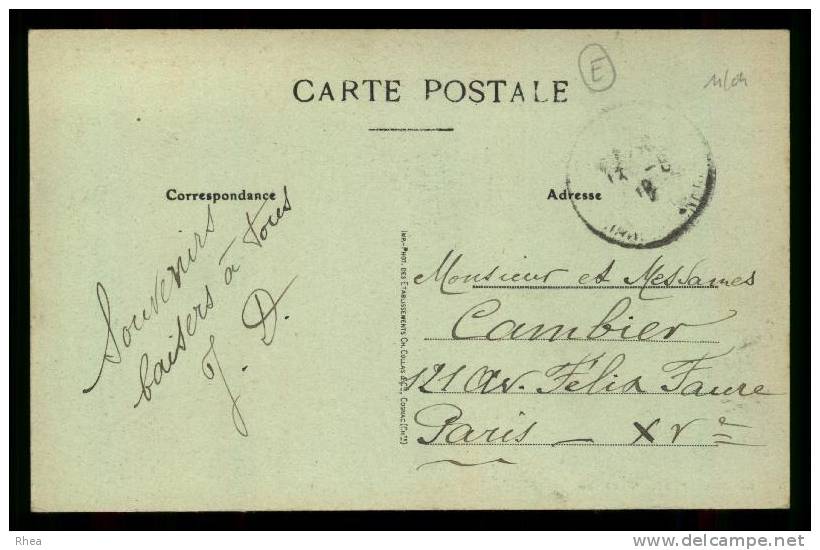 E
11/04
CARTE POSTALE
Correspondance
Adresse
Souvenirs
baisers à tous
J. D.
IMP.-PHOT. DES ETABLISSEMENTS CH. COLLAS & Cie, COGNAC (Chte)
Monsieur et Mesdames
Cambier
121 Av. Félix Faure
Paris — XVe
Rhea
www.delcampe.net